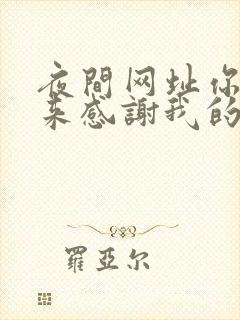 夜間网址你
来感謝我的
羅亞尔